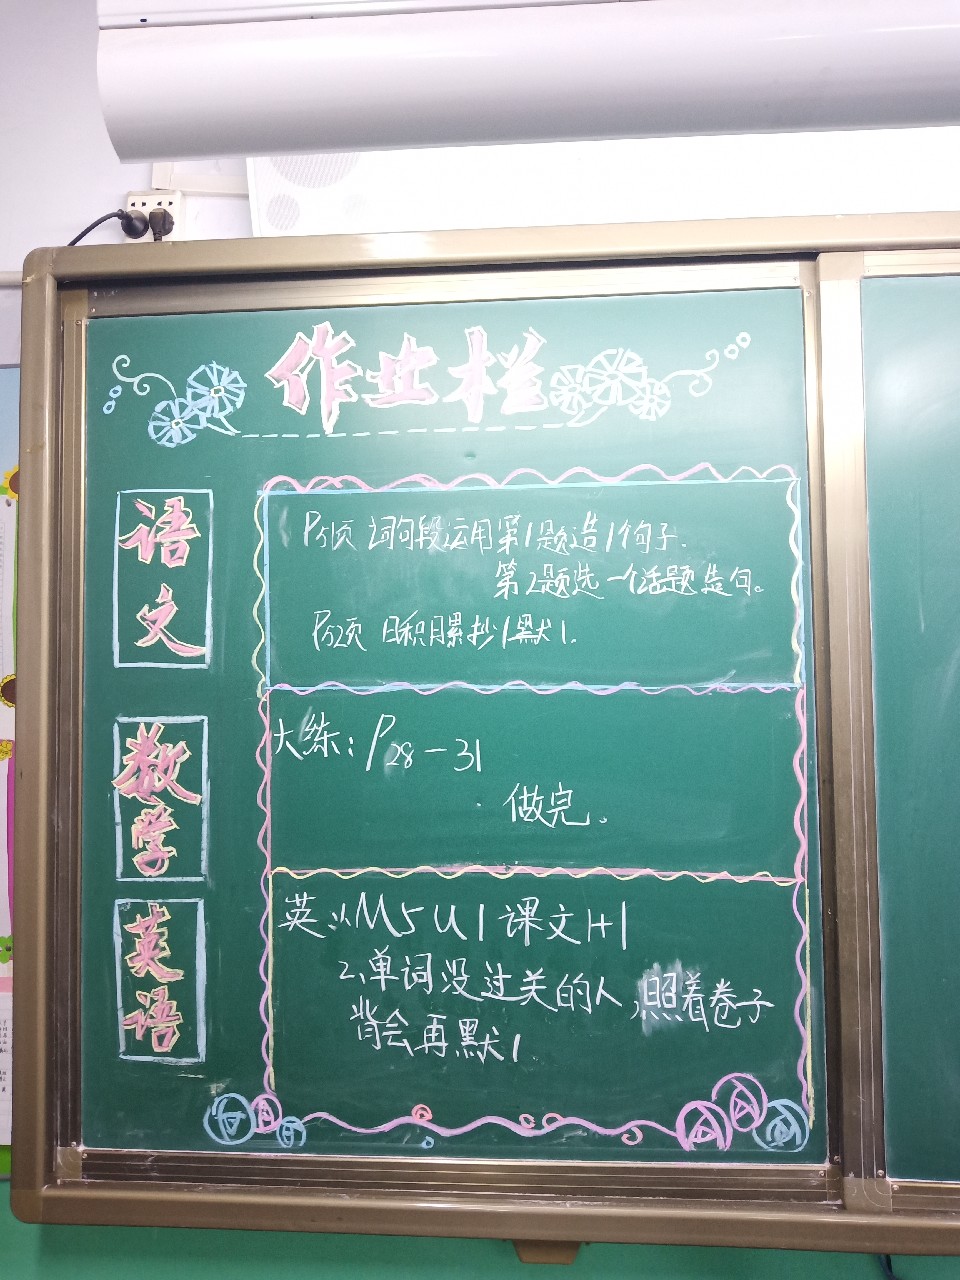 作业栏
语文
P51页 词句段运用第1题造1个句子.
第2题选一个话题造句。
P52页 日积月累抄1默1.
数学
大练：P28－31
做完。
英语
英：1、M5U1课文1+1
2、单词没过关的人，照着卷子
背会再默1